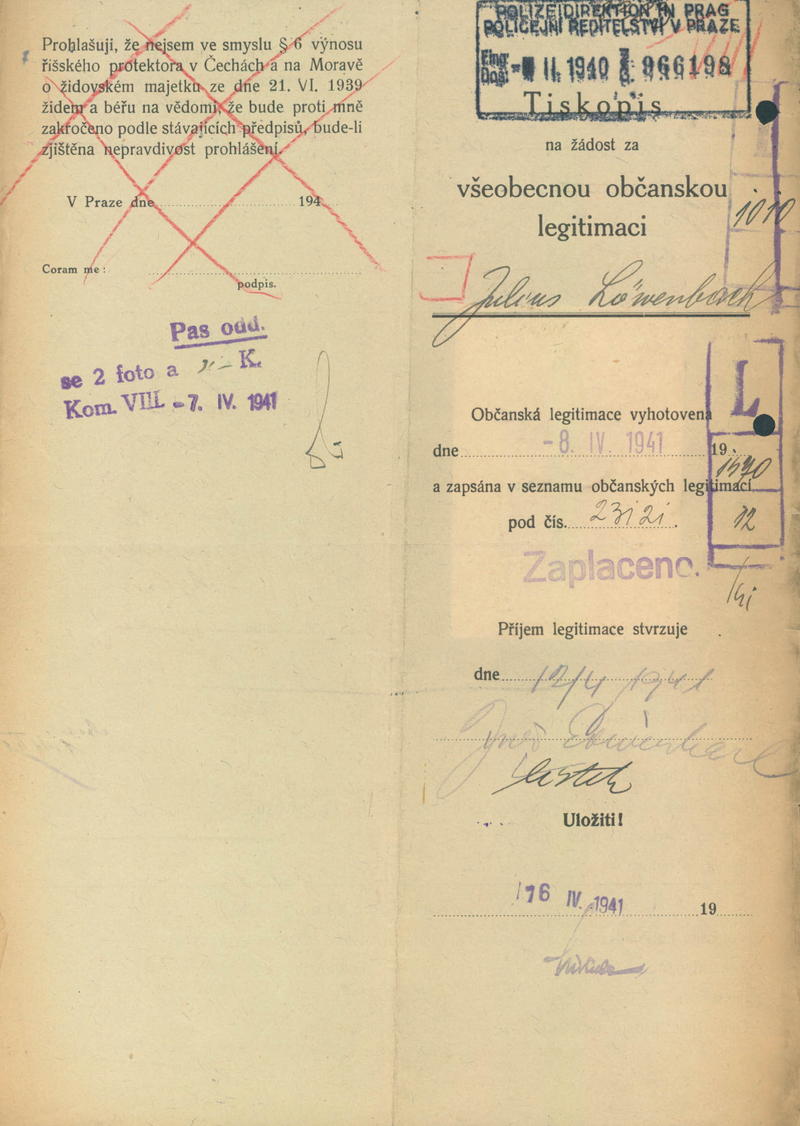 Prohlašuji, že nejsem ve smyslu § 6 výnosu
říšského protektora v Čechách a na Moravě
o židovském majetku ze dne 21. VI. 1939
židem a béřu na vědomí, že bude proti mně
zakročeno podle stávajících předpisů, bude-li
zjištěna nepravdivost prohlášení.
V Praze dne 194
Coram me :
podpis.
Pas odd.
se 2 foto a K.
Kom. VIII. - 7. IV. 1941
POLIZEIDIREKTION IN PRAG
POLICEJNÍ ŘEDITELSTVÍ V PRAZE
Eing.
Doš. II. 1940 966198
Tiskopis
na žádost za
všeobecnou občanskou
legitimaci
1010
Julius Löwenbach
L
Občanská legitimace vyhotovena
dne - 8. IV. 1941 19
1570
a zapsána v seznamu občanských legitimací
pod čís. 23121.
12
Zaplaceno.
Příjem legitimace stvrzuje
dne 12/4 1941
Uložiti!
16 IV. 1941 19